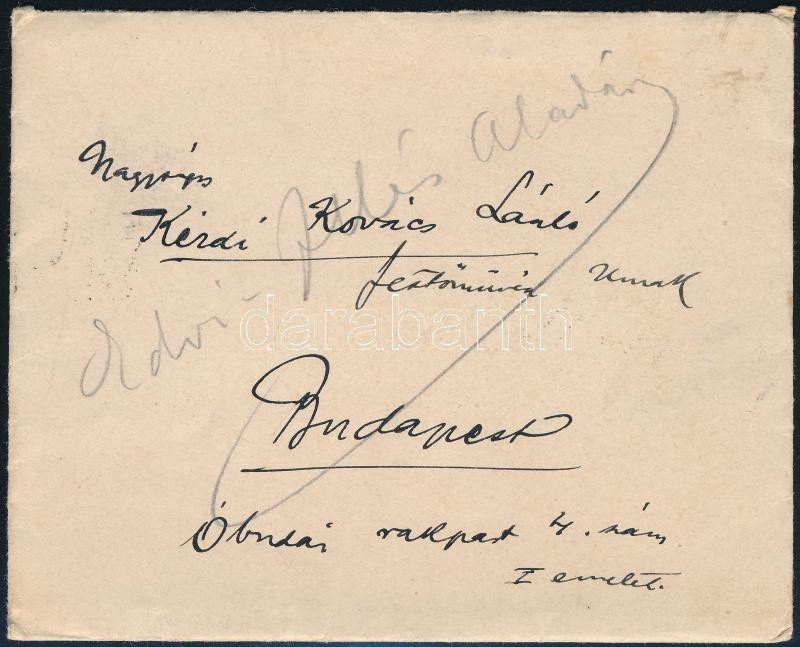 Nagyságos
Kézdi Kovács László
festőművész Urnak
Budapest
Óbudai rakpart 4. szám
I emelet.
Edvi-Illés Aladár
darabanth